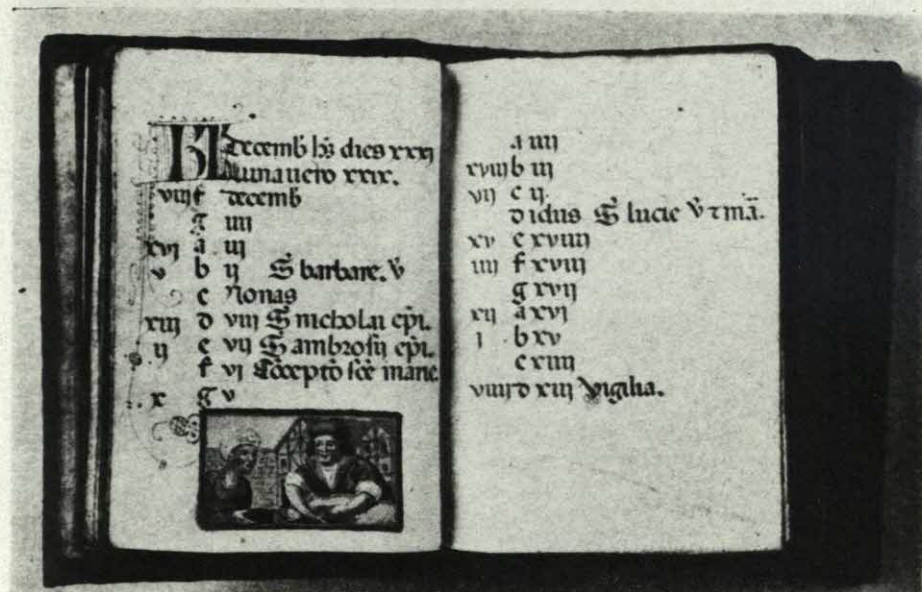 KL decemb̄ hs dies xxxj
luna uero xxix.
viiii f decemb̄
g iiij
xvj a iij
v b ij S barbare. v̄
c Nonas
xiij d viij S nicholai ep̄i.
ij e vij S ambrosij ep̄i.
f vj Cōcepto sc̄e marie
x g v
a iiij
xviij b iij
vij c ij.
d idus S lucie v̄ ⁊ mā.
xv e xviiij
iiij f xviij
g xvij
xij a xvj
j b xv
c xiiij
viiij d xiij Vigilia.